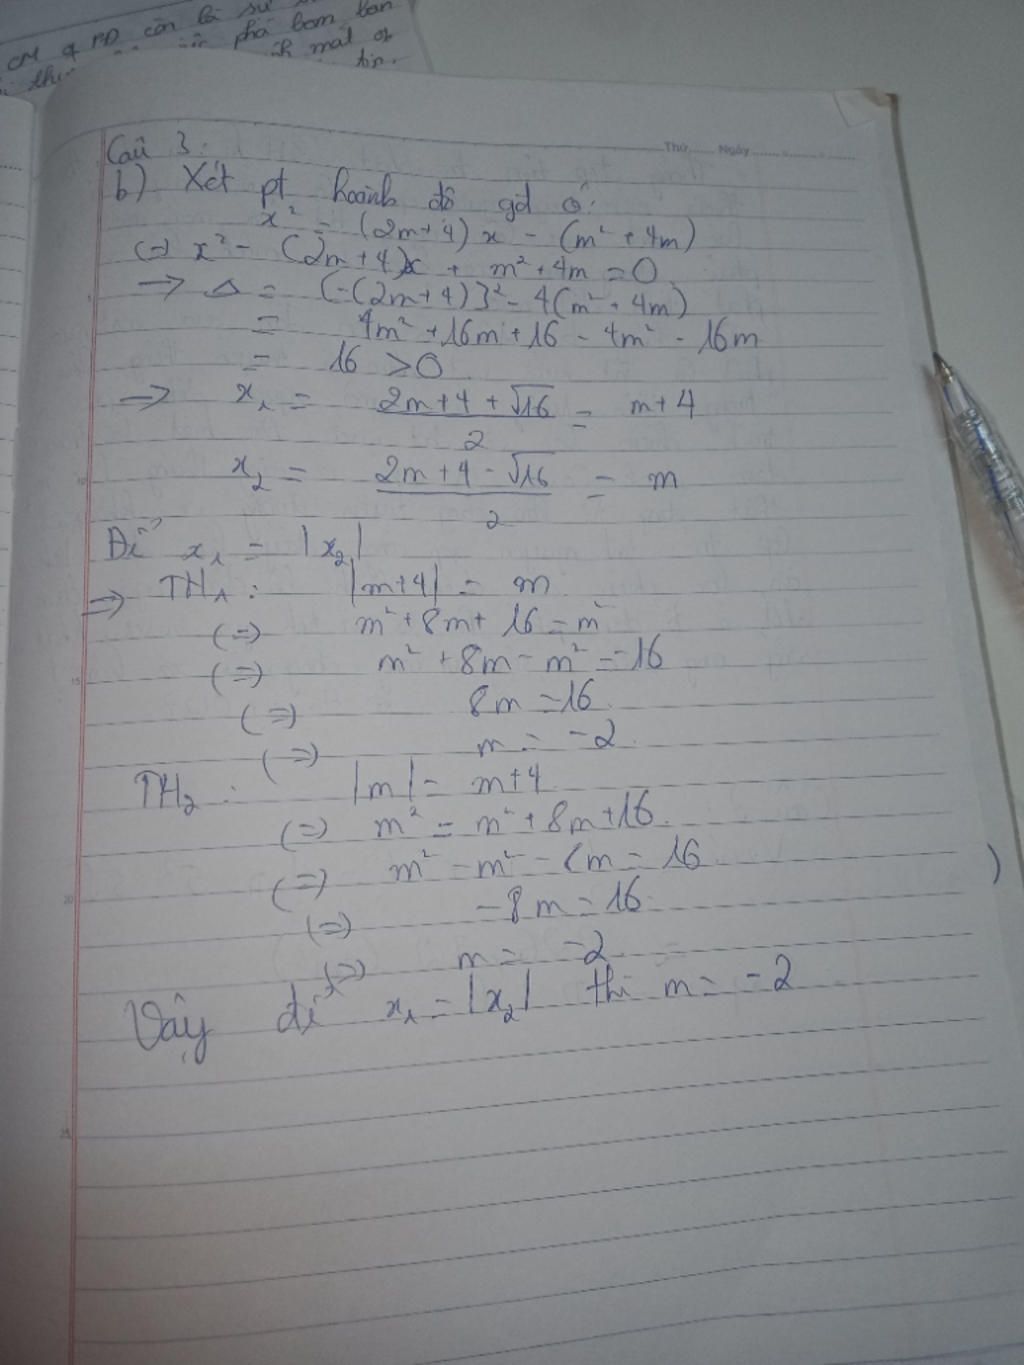 CM
phá bom
mất
Thứ ...... Ngày ......
Câu 3:
b) Xét pt hoành độ gđ có:
x² = (2m+4)x - (m² + 4m)
(=) x² - (2m+4)x + m² + 4m = 0
→ Δ = (-(2m+4)]² - 4(m² + 4m)
= 4m² + 16m + 16 - 4m² - 16m
= 16 > 0
→ x₁ = (2m+4 + √16)/2 = m+4
x₂ = (2m+4 - √16)/2 = m
Để x₁ = |x₂|
=> TH₁: |m+4| = m
(=) m² + 8m + 16 = m²
(=) m² + 8m - m² = -16
(=) 8m = 16
(=) m = -2
TH₂: |m| = m+4
(=) m² = m² + 8m + 16
(=) m² - m² - 8m = 16
(=) -8m = 16
(=) m = -2
Vậy để x₁ = |x₂| thì m = -2